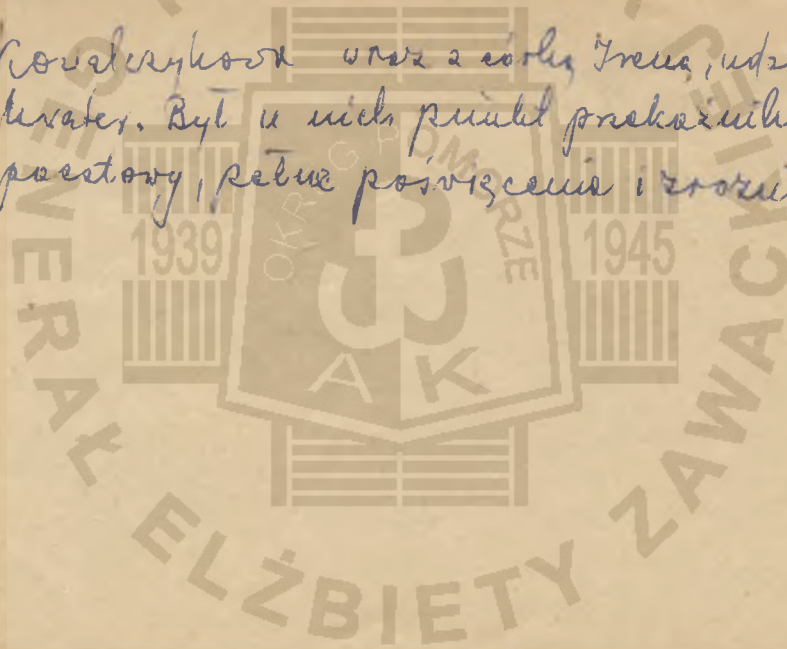 Kowalczykowa wraz z córką Ireną, udz
kwater. Był u nich punkt przekaźnik
pocztowy, pełne poświęcenia i zrozu
OKRĘG POMORZE
1939
1945
A K
GENERAŁ ELŻBIETY ZAWACKIEJ